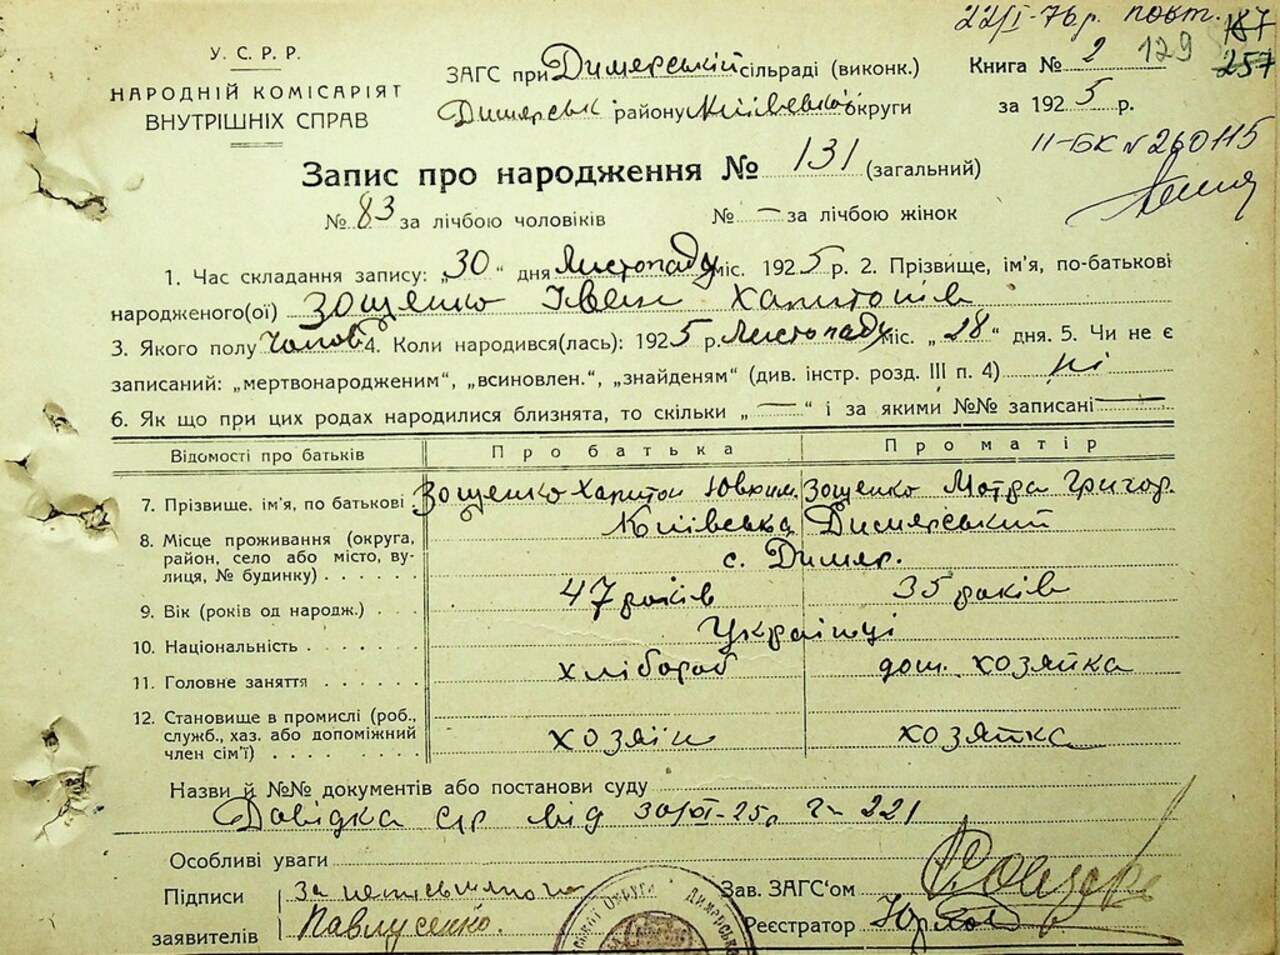 22/I-76р. повт. 187
У.С.Р.Р.
НАРОДНІЙ КОМІСАРІЯТ
ВНУТРІШНІХ СПРАВ
ЗАГС при Димерській сільраді (виконк.)
Димерськ району Київської округи
Книга № 2 129 257
за 1925 р.
II-БК № 260115
Запис про народження № 131 (загальний)
№ 83 за лічбою чоловіків № — за лічбою жінок
1. Час складання запису: „30" дня Листопаду міс. 1925 р. 2. Прізвище, ім'я, по-батькові
народженого(ої) Зощенко Іван Харитонів
3. Якого полу Чолов 4. Коли народився(лась): 1925 р. Листопаду міс. „28" дня. 5. Чи не є
записаний: „мертвонародженим", „всиновлен.", „знайденям" (див. інстр. розд. III п. 4) ні
6. Як що при цих родах народилися близнята, то скільки „—" і за якими №№ записані —
Відомості про батьків Про батька Про матір
7. Прізвище, ім'я, по батькові Зощенко Харитон Юхим. Зощенко Мотра Григор.
8. Місце проживання (округа, район, село або місто, вулиця, № будинку) Київська Димерський
с. Димер.
9. Вік (років од народж.) 47 років 35 років
10. Національність Українці
11. Головне заняття хлібороб дом. хозяйка
12. Становище в промислі (роб., служб., хаз. або допоміжний член сім'ї) хозяїн хозяйка
Назви й №№ документів або постанови суду
Довідка с/р від 30/XI-25р. № 221
Особливі уваги
Підписи за неписьменого Зав. ЗАГС'ом
заявителів Павлусенко. Реєстратор